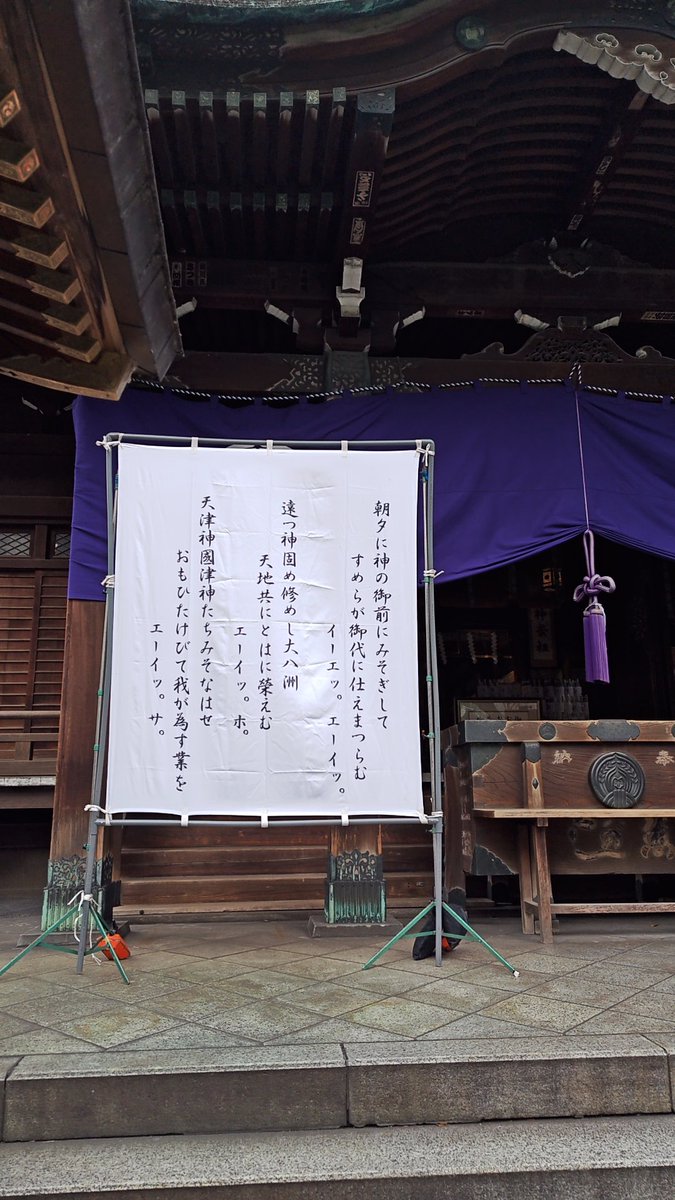 朝夕に神の御前にみそぎして
すめらが御代に仕えまつらむ
イーエッ。エーイッ。
遠つ神固め修めし大八洲
天地共にとはに榮えむ
エーイッ。ホ。
天津神國津神たちみそなはせ
おもひたけびて我が為す業を
エーイッ。サ。
奉
納